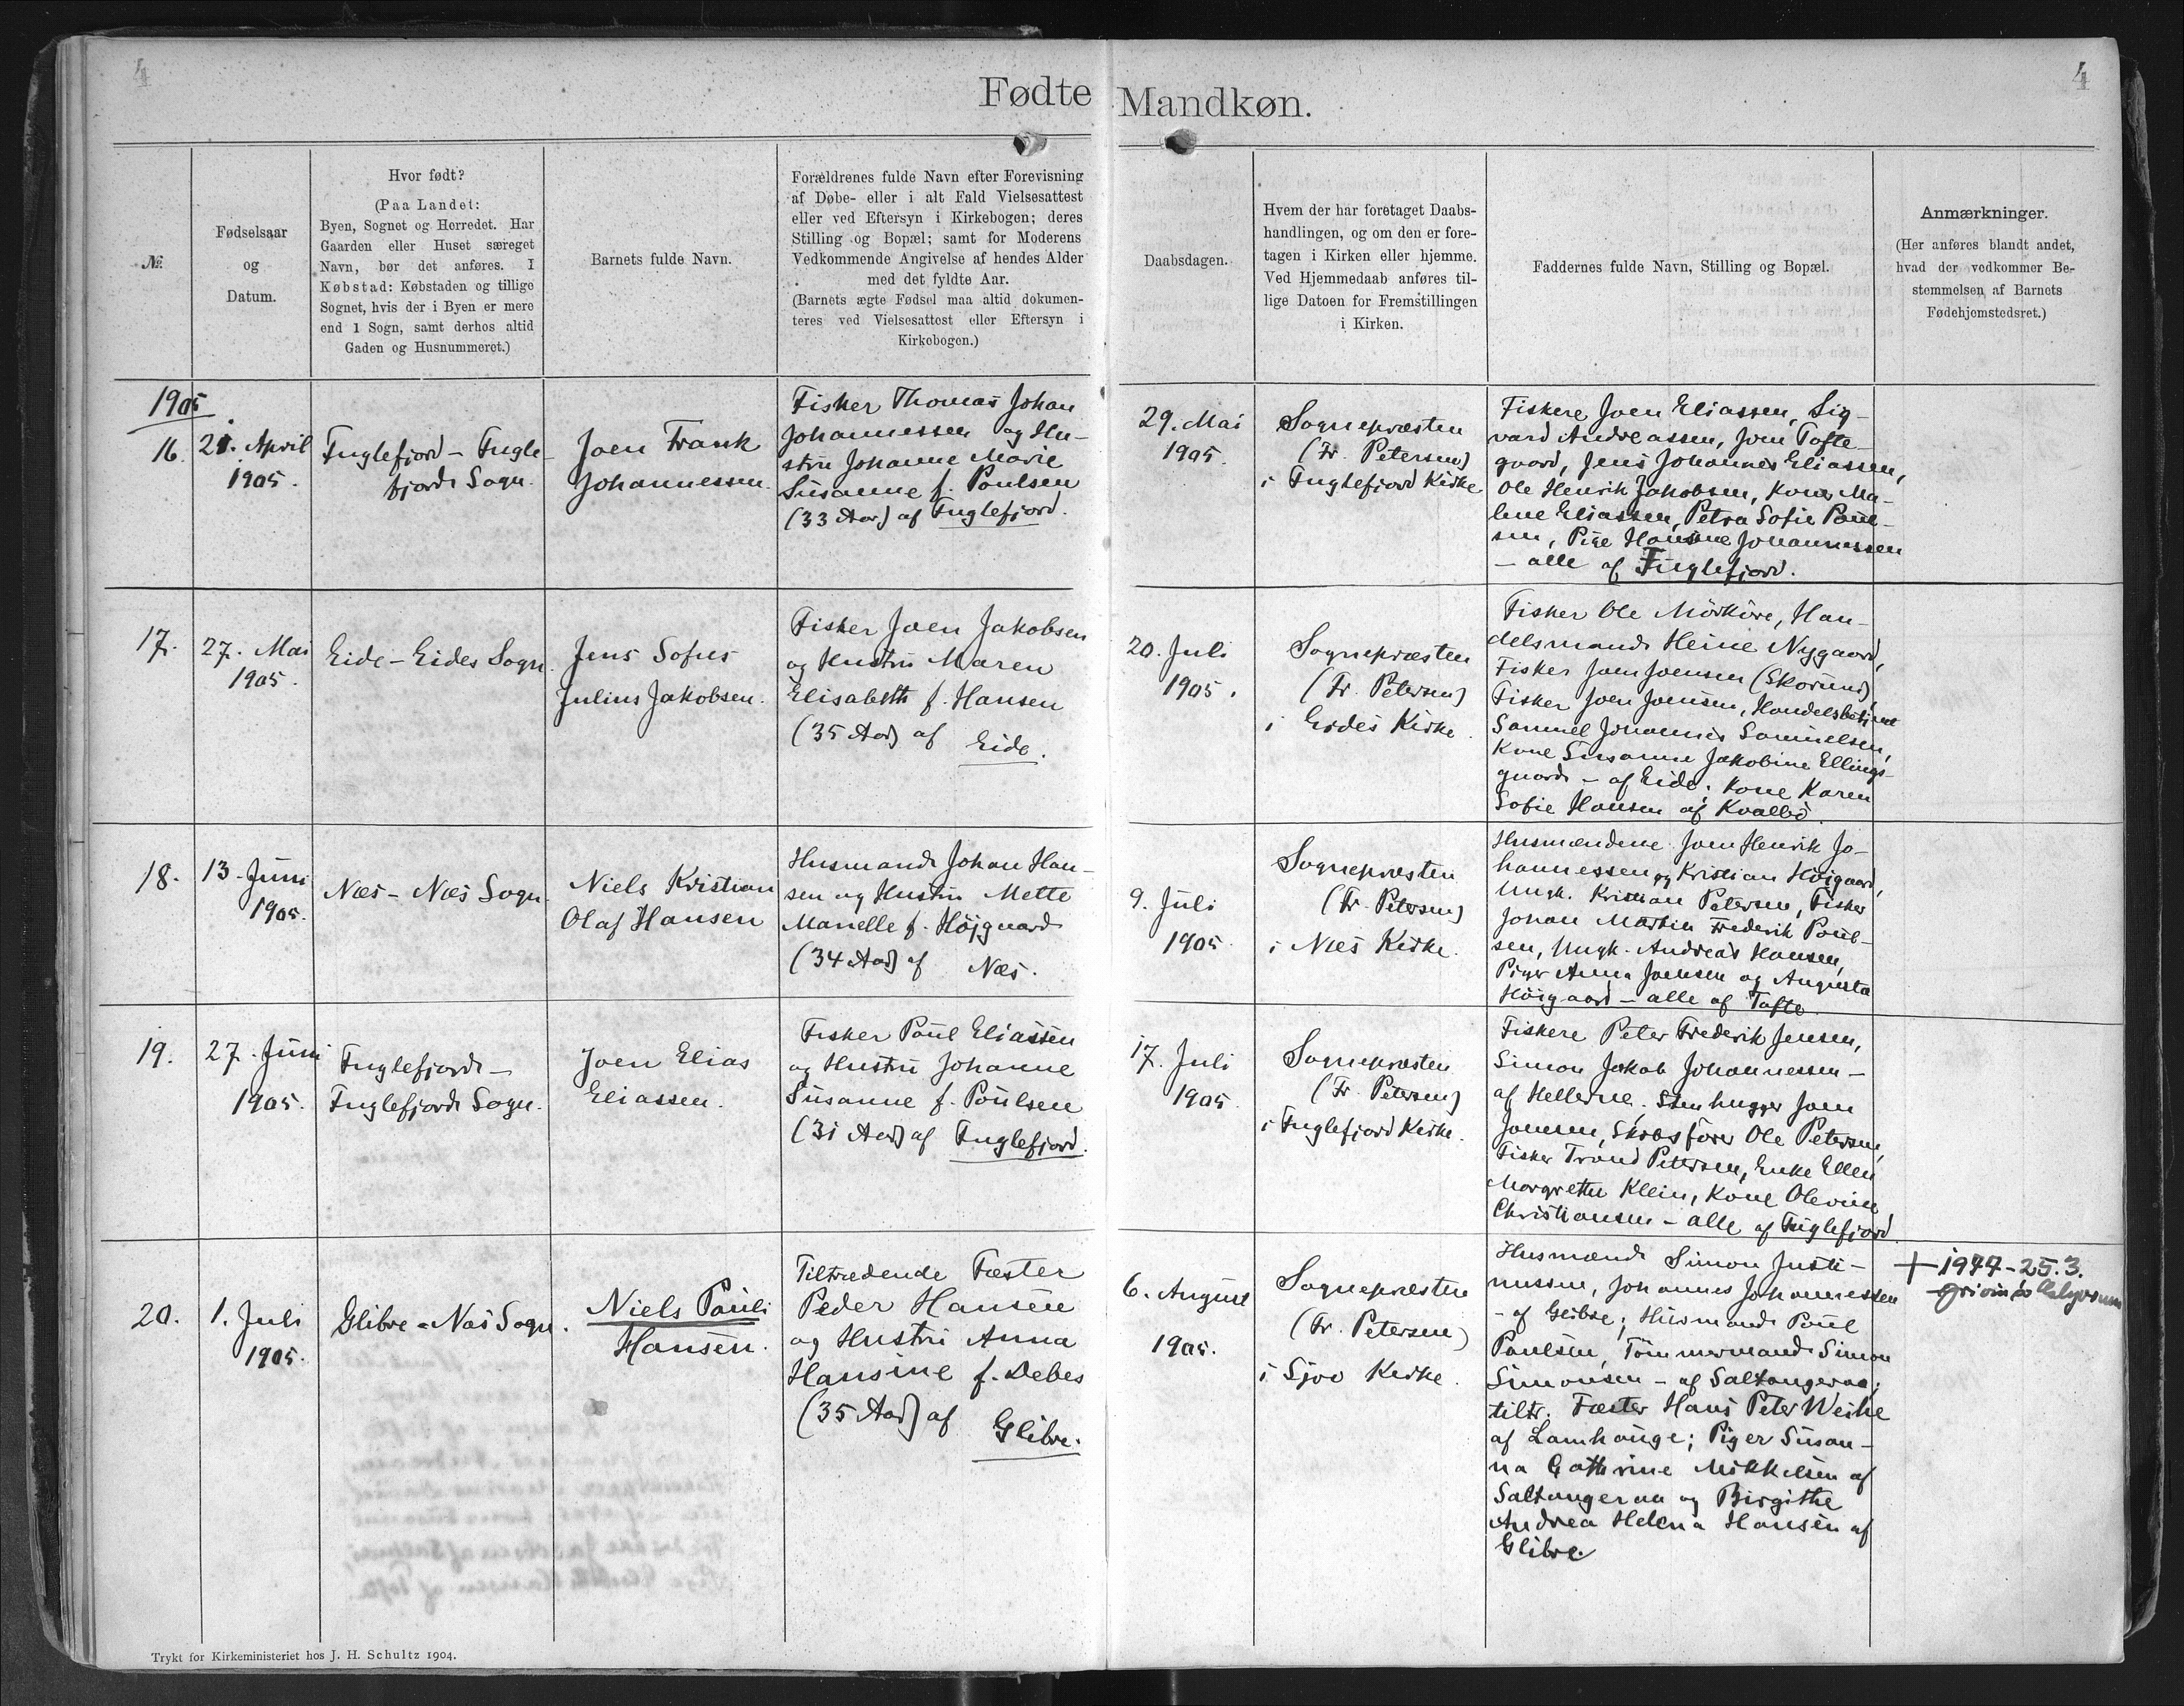 4
4
Fødte Mandkøn.
№
Fødselsaar
og
Datum.
Hvor født?
(Paa Landet:
Byen, Sognet og Herredet. Har
Gaarden eller Huset særeget
Navn, bør det anføres. I
Købstad: Købstaden og tillige
Sognet, hvis der i Byen er mere
end 1 Sogn, samt derhos altid
Gaden og Husnummeret.)
Barnets fulde Navn.
Forældrenes fulde Navn efter Forevisning
af Døbe- eller i alt Fald Vielsesattest
eller ved Eftersyn i Kirkebogen; deres
Stilling og Bopæl; samt for Moderens
Vedkommende Angivelse af hendes Alder
med det fyldte Aar.
(Barnets ægte Fødsel maa altid dokumen-
teres ved Vielsesattest eller Eftersyn i
Kirkebogen.)
Daabsdagen.
Hvem der har foretaget Daabs-
handlingen, og om den er fore-
tagen i Kirken eller hjemme.
Ved Hjemmedaab anføres til-
lige Datoen for Fremstillingen
i Kirken.
Faddernes fulde Navn, Stilling og Bopæl.
Anmærkninger.
(Her anføres blandt andet,
hvad der vedkommer Be-
stemmelsen af Barnets
Fødehjemstedsret.)
1905
16.
21. April
1905.
Fuglefjord - Fugle-
fjords Sogn.
Joen Frank
Johannessen.
Fisker Thomas Johan
Johannessen og Hu-
stru Johanne Marie
Susanne f. Poulsen
(33 Aar) af Fuglefjord.
29. Mai
1905.
Sognepræsten
(Fr. Petersen)
i Fuglefjord Kirke
Fiskere Joen Eliassen, Sig-
vard Andreassen, Joen Tofte-
gaard, Jens Johannes Eliassen,
Ole Henrik Jakobsen, Koner Ma-
lene Eliassen, Petra Sofie Poul-
sen, Pige Hansine Johannessen
- alle af Fuglefjord.
17.
27. Mai
1905.
Eide - Eides Sogn.
Jens Sofus
Julius Jakobsen.
Fisker Joen Jakobsen
og Hustru Maren
Elisabeth f. Hansen
(35 Aar) af Eide.
20. Juli
1905.
Sognepræsten
(Fr. Petersen)
i Eides Kirke.
Fisker Ole Mörköre, Han-
delsmand Heine Nygaard,
Fisker Joen Joensen (Skorund)
Fisker Joen Joensen, Handelsbetjent
Samuel Johannes Samuelsen,
Kone Susanne Jakobine Ellings-
gaard - af Eide; Kone Karen
Sofie Hansen af Kvalbö.
18.
13. Juni
1905.
Næs - Næs Sogn.
Niels Kristian
Olaf Hansen
Husmand Johan Han-
sen og Hustru Mette
Marielle f. Højgaard
(34 Aar) af Næs.
9. Juli
1905.
Sognepræsten
(Fr. Petersen)
i Næs Kirke.
Husmændene Joen Henrik Jo-
hannessen og Kristian Højgaard,
Ungk. Kristian Petersen, Fisker
Johan Martin Frederik Poul-
sen, Ungk. Andreas Hansen,
Piger Anna Joensen og Augusta
Höigaard - alle af Tofte.
19.
27. Juni
1905.
Fuglefjord -
Fuglefjords Sogn.
Joen Elias
Eliassen.
Fisker Poul Eliassen
og Hustru Johanne
Susanne f. Poulsen
(31 Aar) af Fuglefjord.
17. Juli
1905.
Sognepræsten
(Fr. Petersen)
i Fuglefjord Kirke.
Fiskere Peter Frederik Jensen,
Simon Jakob Johannessen -
af Hellerne. Stenhugger Joen
Joensen, Skibsförer Ole Petersen,
Fisker Trond Petersen, Enke Ellen
Margrethe Klein, Kone Olevine
Christiansen - alle af Fuglefjord.
20.
1. Juli
1905.
Glibre - Næs Sogn.
Niels Pauli
Hansen.
Tiltrædende Fæster
Peder Hansen
og Hustru Anna
Hansine f. Debes
(35 Aar) af Glibre.
6. August
1905.
Sognepræsten
(Fr. Petersen)
i Sjov Kirke.
Husmænd Simon Justi-
nussen, Johannes Johannessen
- af Glibre; Husmand Poul
Poulsen, Tömmermand Simon
Simonsen - af Saltangeraa;
tiltr. Fæster Hans Peter Weihe
af Lamhauge; Piger Susan-
na Cathrine Mikkelsen af
Saltangeraa og Birgithe
Andrea Helena Hansen af
Glibre.
+ 1944-25.3.
Trykt for Kirkeministeriet hos J. H. Schultz 1904.